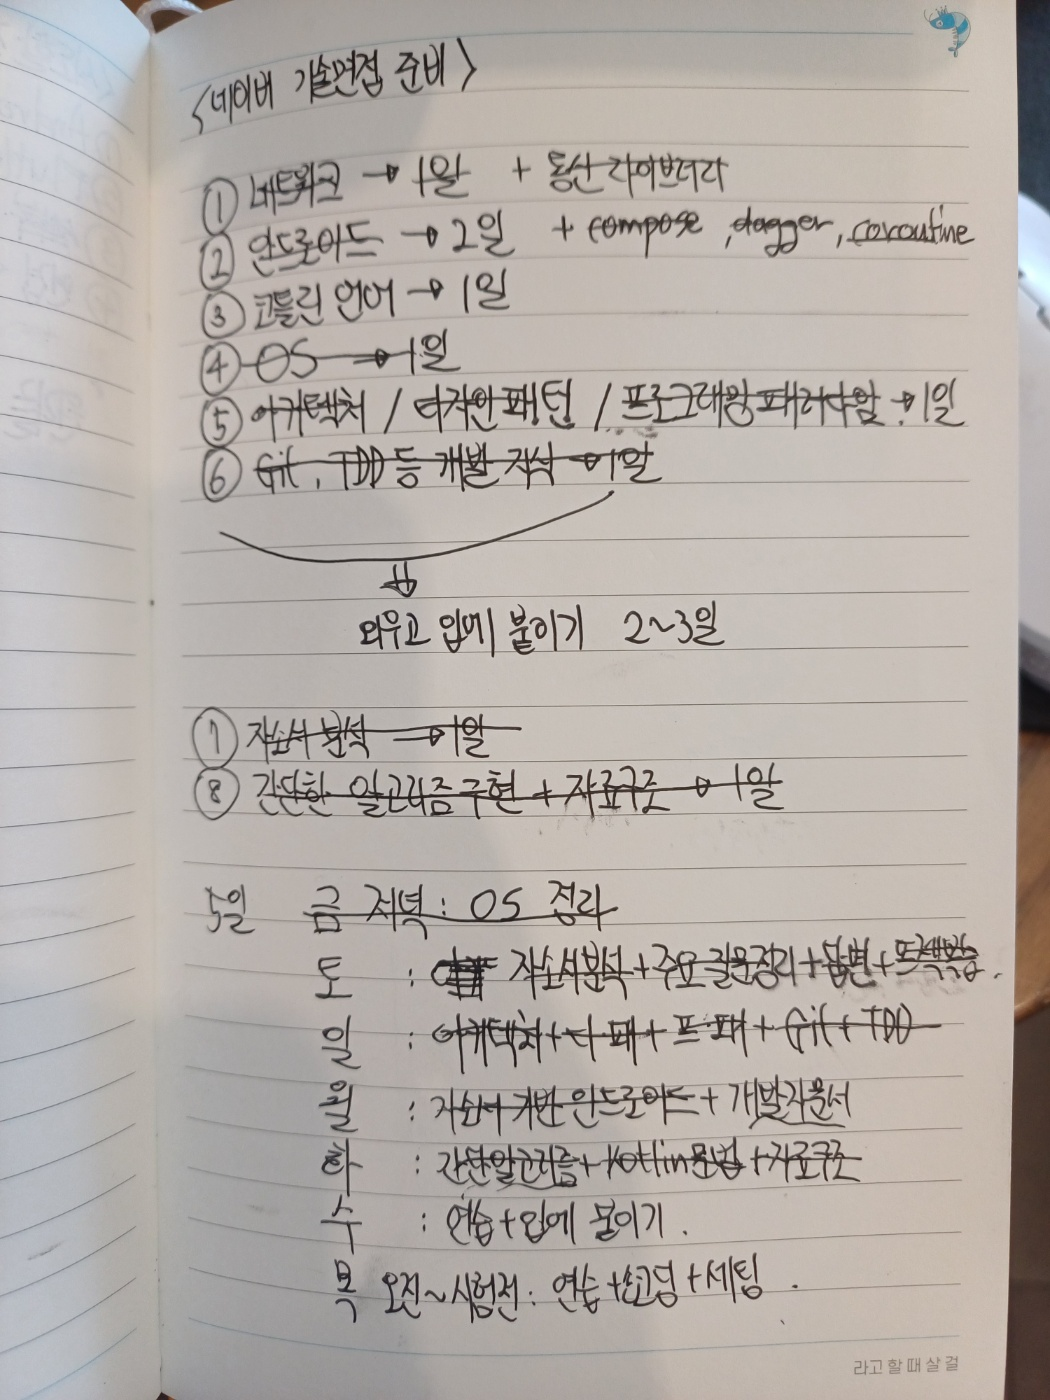 <네이버 기술면접 준비>
① 네트워크 → 1일 + 통신 라이브러리
② 안드로이드 → 2일 + compose, dagger, coroutine
③ 코틀린 언어 → 1일
④ OS → 1일
⑤ 아키텍처 / 디자인패턴 / 프로그래밍 패러다임 → 1일
⑥ Git, TDD 등 개발 지식 → 1일
외우고 입에 붙이기 2~3일
⑦ 자소서 분석 → 1일
⑧ 간단한 알고리즘 구현 + 자료구조 → 1일
5일 금 저녁 : OS 정리
토 : 자소서분석 + 주요 질문정리 + 답변 +
일 : 아키텍처 + 디 패 + 프 패 + Git + TDD
월 : 자소서 기반 안드로이드 + 개발자문서
화 : 간단알고리즘 + kotlin문법 + 자료구조
수 : 연습 + 입에 붙이기.
목 오전~시험전 : 연습 + 코딩 + 세팅.
라고 할 때 살 걸